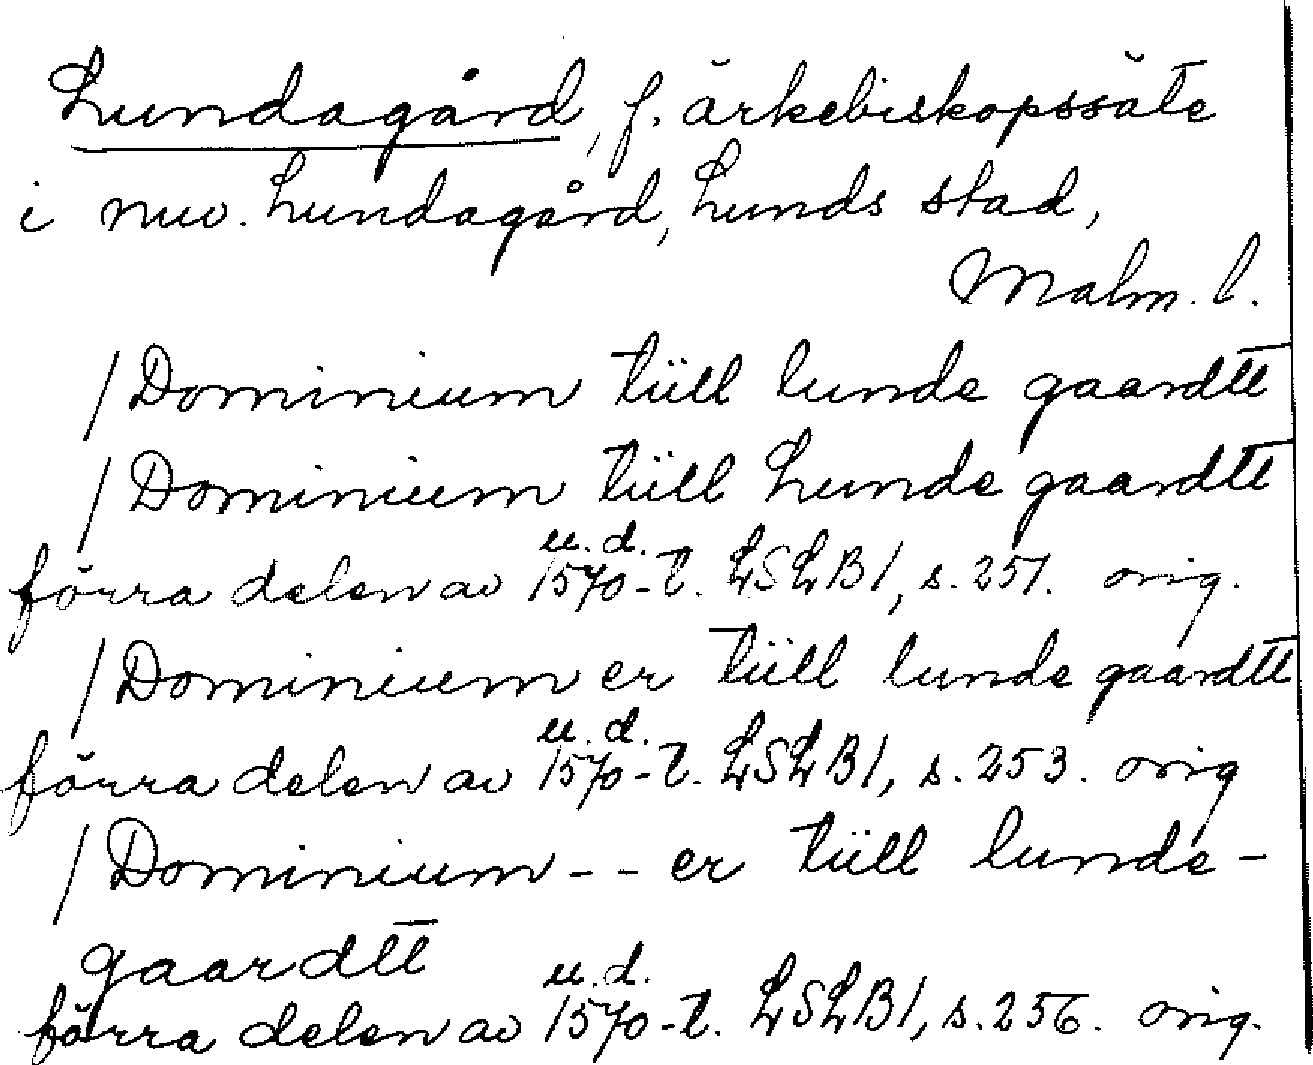 Lundagård, f. ärkebiskopssäte
i nuv. Lundagård, Lunds stad,
Malm. l.
/ Dominium tiill lunde gaardtt
/ Dominium tiill Lunde gaardtt
u. d.
förra delen av 1570-t. LSLB1, s. 251. orig.
/ Dominium er tiill lunde gaardtt
u. d.
förra delen av 1570-t. LSLB1, s. 253. orig
/ Dominium -- er tiill lunde-
gaardtt
u. d.
förra delen av 1570-t. LSLB1, s. 256. orig.